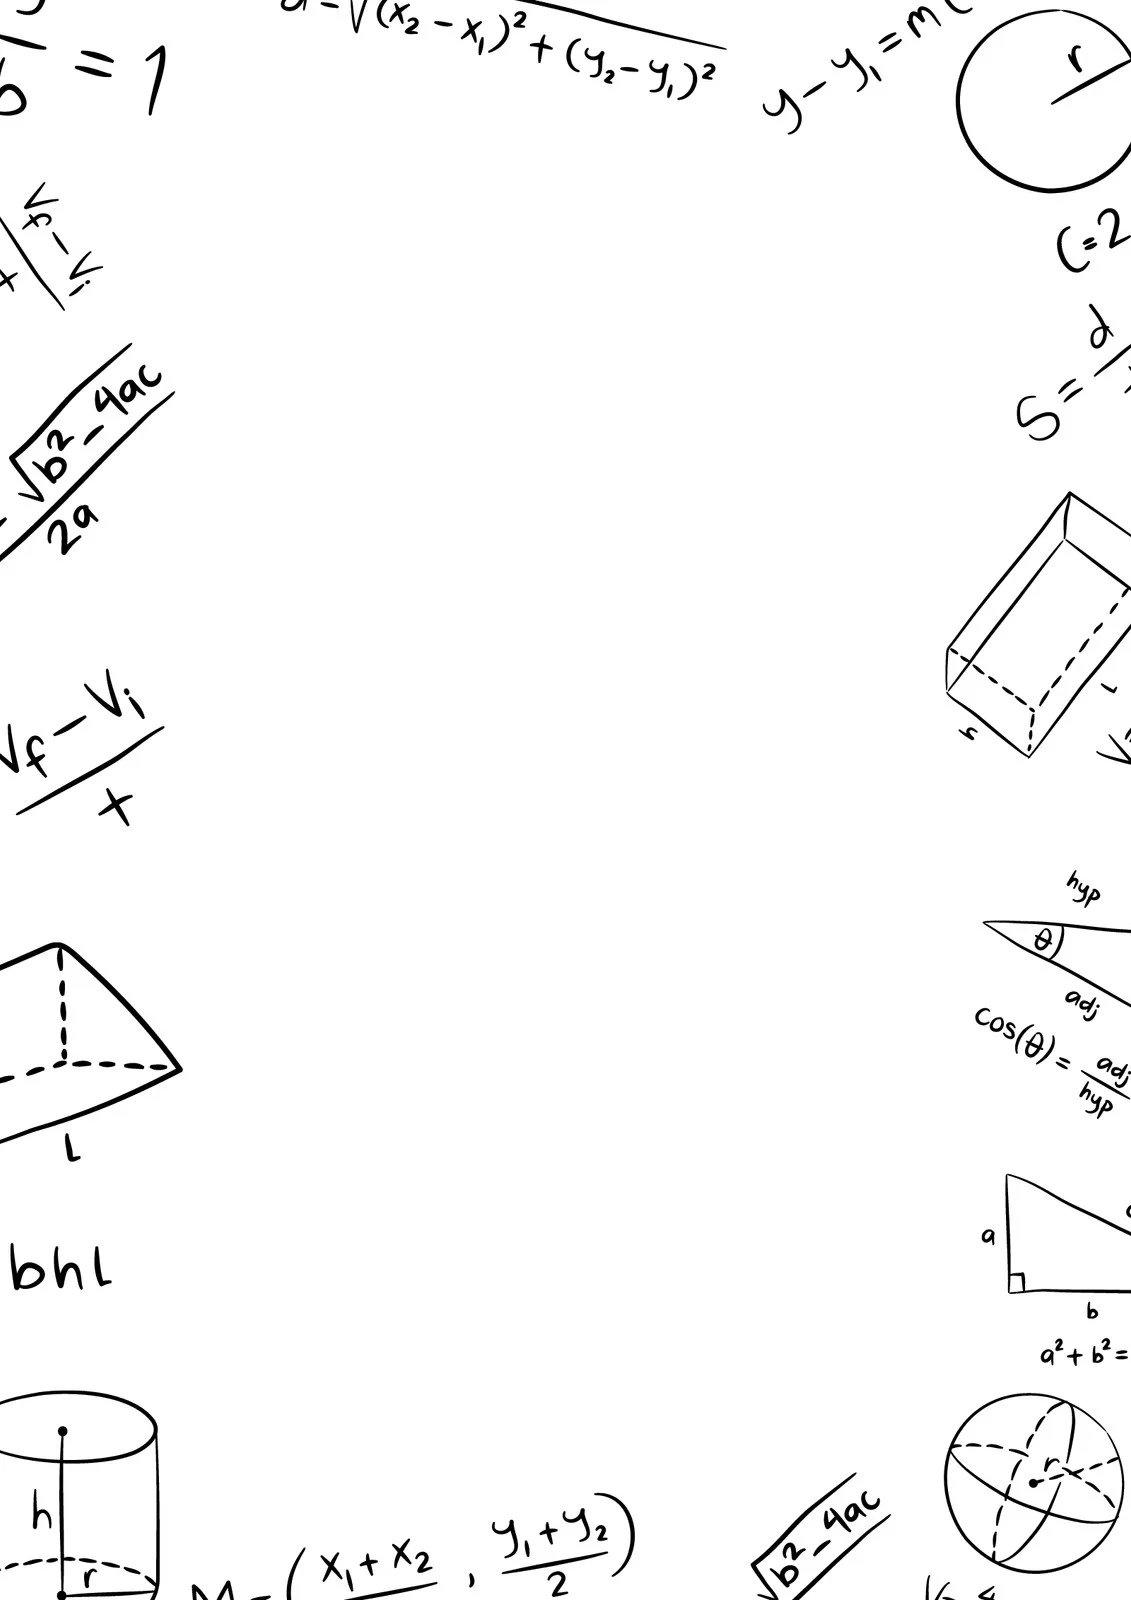 d = √(x₂ − x₁)² + (y₂ − y₁)²
y − y₁ = m(
b = 1
r
C = 2
S = d
√b² − 4ac
2a
Vf − Vi
t
s
L
hyp
θ
adj
cos(θ) = adj
hyp
L
bhL
a
b
a² + b² =
h
r
r
M = (x₁ + x₂ , y₁ + y₂)
2
√b² − 4ac